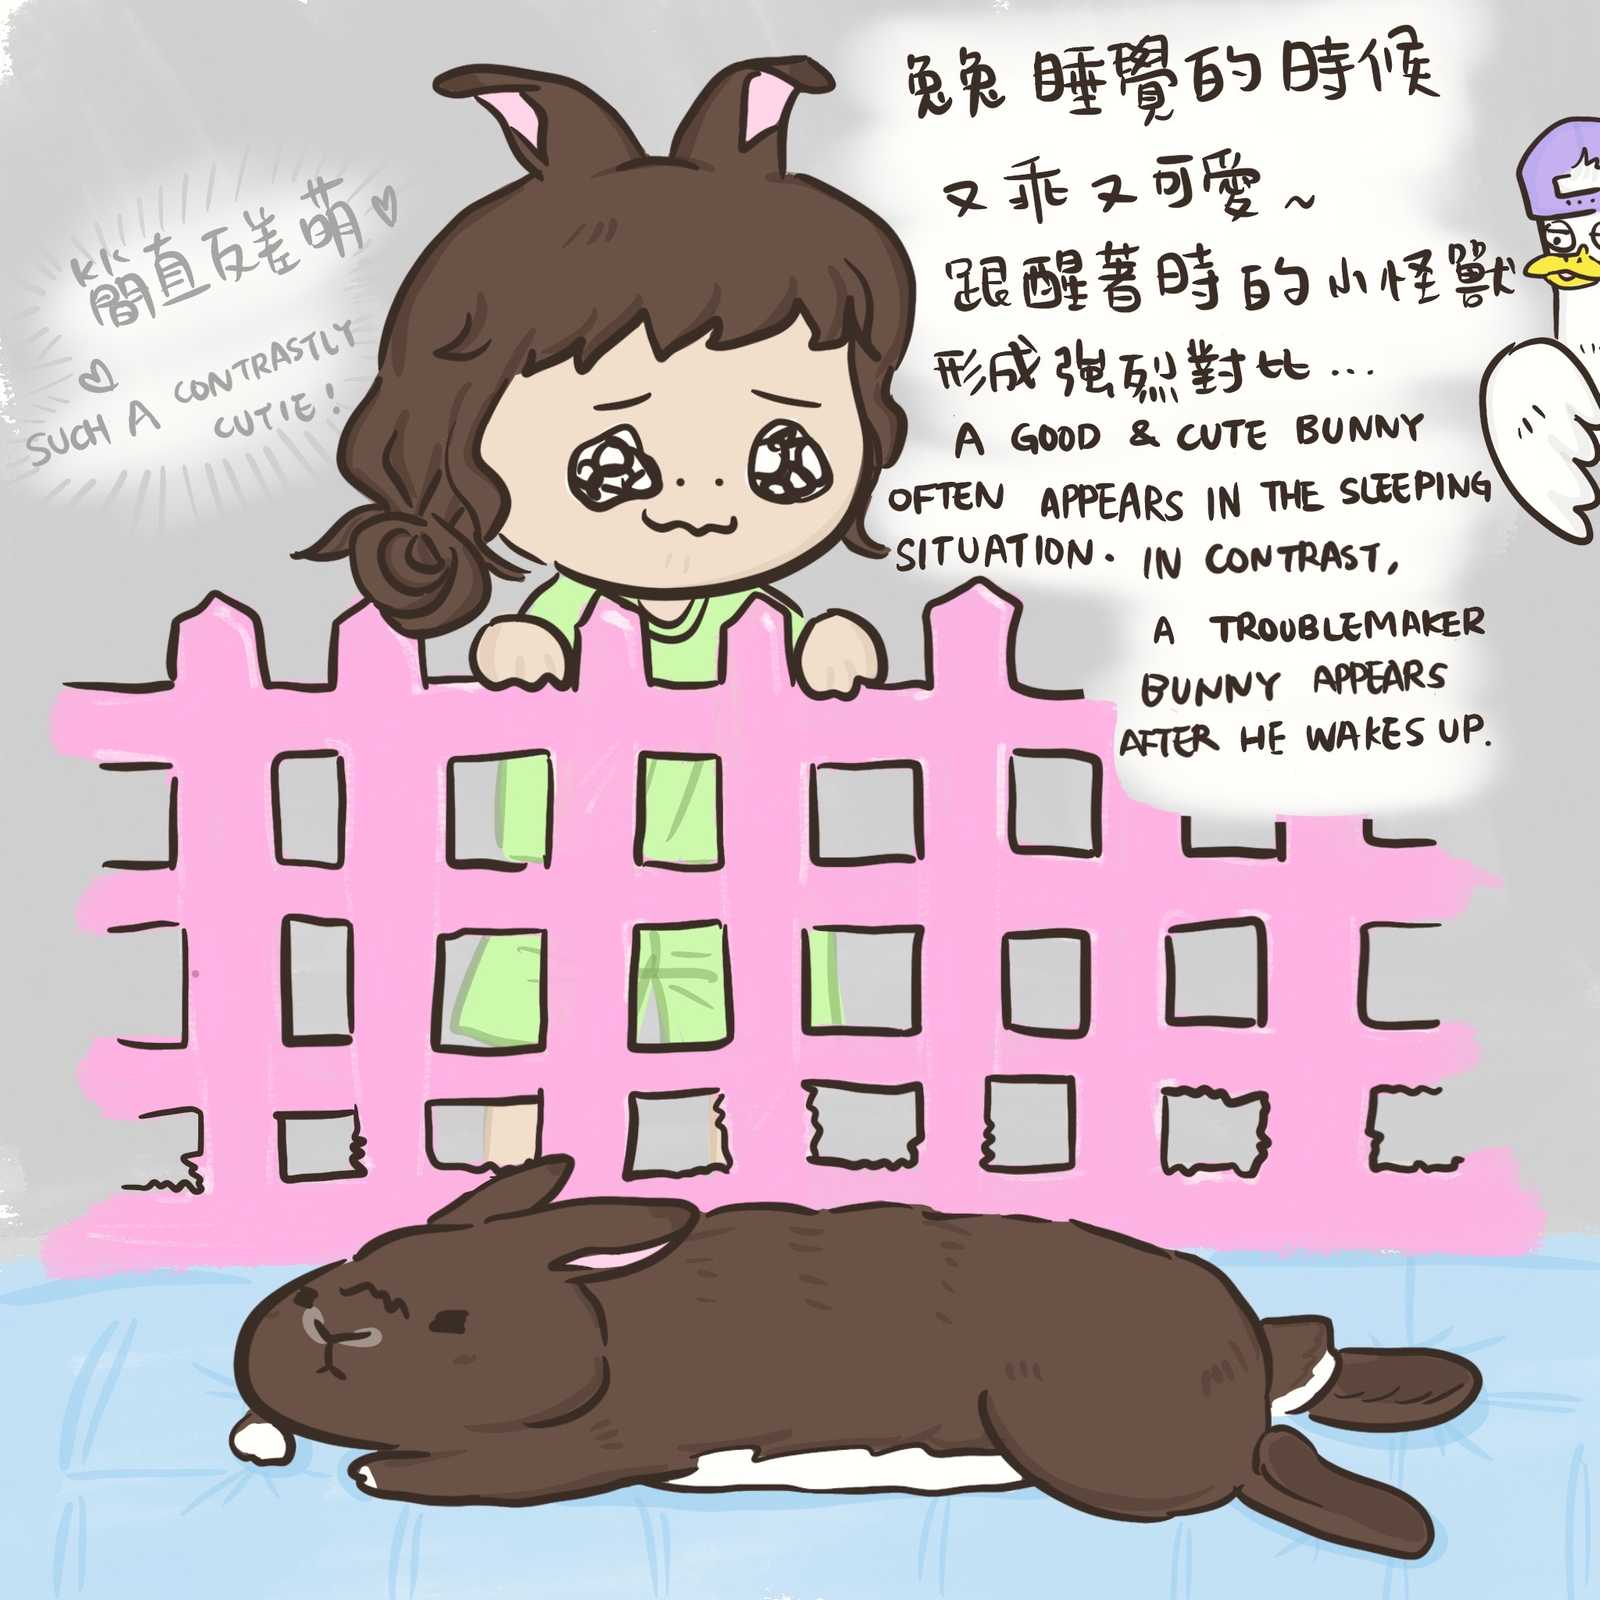 兔兔睡覺的時候
又乖又可愛~
跟醒著時的小怪獸
形成強烈對比...
A GOOD & CUTE BUNNY
OFTEN APPEARS IN THE SLEEPING
SITUATION. IN CONTRAST,
A TROUBLEMAKER
BUNNY APPEARS
AFTER HE WAKES UP.
KK
簡直反差萌♡
♡
SUCH A CONTRASTLY
CUTIE!